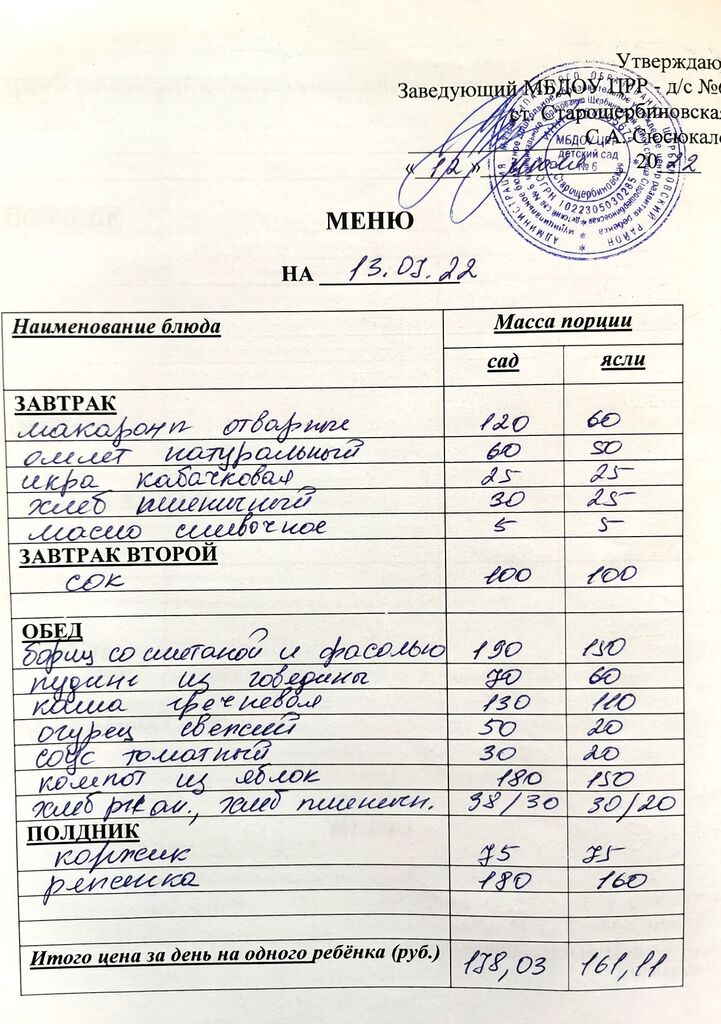 Утверждаю
Заведующий МБДОУ ЦРР - д/с №6
ст. Старощербиновская
С.А. Сюсюкало
« 12 » 20 22
МБДОУ ЦРР
детский сад
№ 6
ст. Старощербиновская
ОГРН 1022305030285
АДМИНИСТРАЦИЯ
МЕНЮ
НА 13.07.22
Наименование блюда Масса порции
сад ясли
ЗАВТРАК
макароны отварные 120 60
омлет натуральный 60 50
икра кабачковая 25 25
хлеб пшеничный 30 25
масло сливочное 5 5
ЗАВТРАК ВТОРОЙ
сок 100 100
ОБЕД
борщ со сметаной и фасолью 190 150
пудинг из говядины 70 60
каша гречневая 130 110
огурец свежий 50 20
соус томатный 30 20
компот из яблок 180 150
хлеб ржан., хлеб пшеничн. 38/30 30/20
ПОЛДНИК
коржик 75 75
ряженка 180 160
Итого цена за день на одного ребёнка (руб.) 178,03 161,11